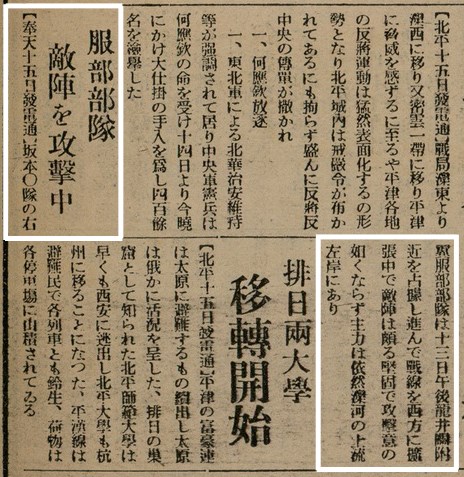 【北平十五日發電通】戰局灤東より
灤西に移り又密雲一帶に移り平津
に脅威を感ずるに至るや平津各地
の反蔣運動は猛然表面化するの形
勢となり北平城內は戒嚴令が布か
れてあるにも拘らず盛んに反蔣反
中央の傳單が撒かれ
一、何應欽放逐
一、東北軍による北華治安維持
等が强調されて居り中央軍憲兵は
何應欽の命を受け十四日より今曉
にかけ大仕掛の手入を爲し四百餘
名を檢擧した
服部部隊
敵陣を攻擊中
【奉天十五日發電通】坂本〇隊の右
翼服部部隊は十三日午後龍井關附
近を占據し進んで戰線を西方に擴
張中で敵陣は頗る堅固で攻擊意の
如くならず主力は依然灤河の上流
左岸にあり
排日兩大學
移轉開始
【北平十五日發電通】平津の富豪連
は太原に避難するもの續出し太原
は俄かに活況を呈した、排日の巢
窟として知られた北平師範大學は
早くも西安に逃出し北平大學も杭
州に移ることになつた、平漢線は
避難民で各列車とも鈴生、荷物は
各停車場に山積されてゐる